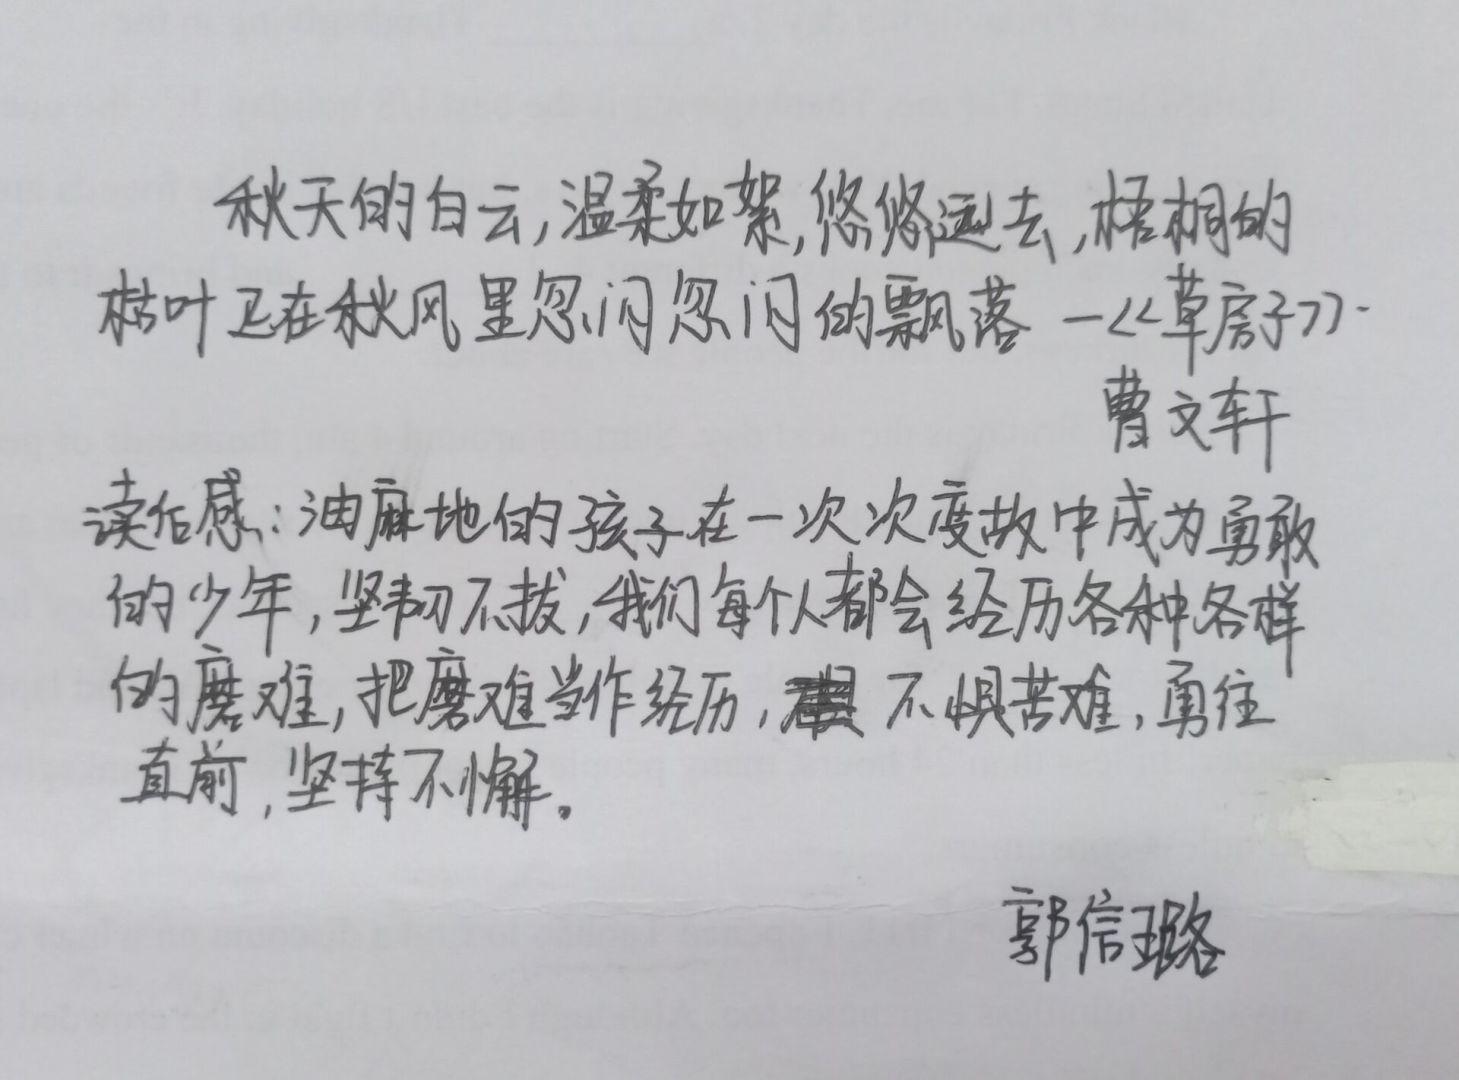 秋天的白云，温柔如絮，悠悠远去，梧桐的
枯叶正在秋风里忽闪忽闪的飘落 —《草房子》.
曹文轩
读后感：油麻地的孩子在一次次变故中成为勇敢
的少年，坚韧不拔，我们每个人都会经历各种各样
的磨难，把磨难当作经历， 不惧苦难，勇往
直前，坚持不懈。
郭信璐